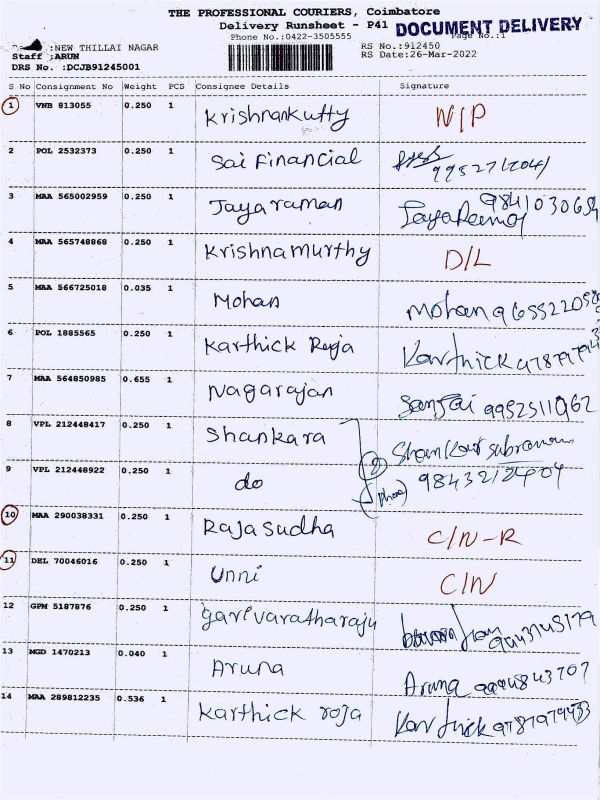 THE PROFESSIONAL COURIERS, Coimbatore
Delivery Runsheet - P41 DOCUMENT DELIVERY
Phone No.:0422-3505555 Page No.:1
:NEW THILLAI NAGAR RS No.:912450
Staff :ARUN RS Date:26-Mar-2022
DRS No. :DCJB91245001
S No Consignment No Weight PCS Consignee Details Signature
1 VNB 813055 0.250 1 Krishnankutty N/P
2 POL 2532373 0.250 1 Sai Financial
3 MAA 565002959 0.250 1 Jayaraman
4 MAA 565748868 0.250 1 Krishnamurthy D/L
5 MAA 566725018 0.035 1 Mohan Mohan
6 POL 1885565 0.250 1 Karthick Roja Karthick
7 MAA 564850985 0.655 1 Nagarajan Sanjai 9952511962
8 VPL 212448417 0.250 1 Shankara
9 VPL 212448922 0.250 1 do 2
10 MAA 290038331 0.250 1 Raja Sudha C/N-R
11 DEL 70046016 0.250 1 Unni C/N
12 GPM 5187876 0.250 1
13 MGD 1470213 0.040 1 Aruna Aruna
14 MAA 289812235 0.536 1 Karthick roja Karthick